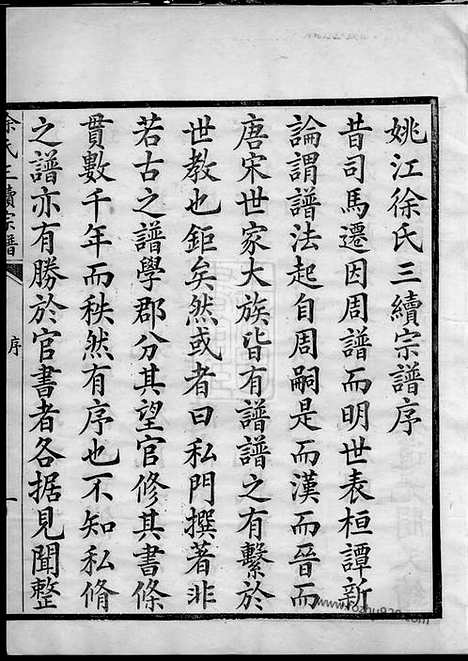 姚江徐氏三續宗譜序
昔司馬遷因周譜而明世表桓譚新
論謂譜法起自周嗣是而漢而晉而
唐宋世家大族皆有譜譜之有繫於
世教也鉅矣然或者曰私門撰著非
若古之譜學郡分其望官修其書條
貫數千年而秩然有序也不知私脩
之譜亦有勝於官書者各据見聞整
徐氏三續宗譜
序
一